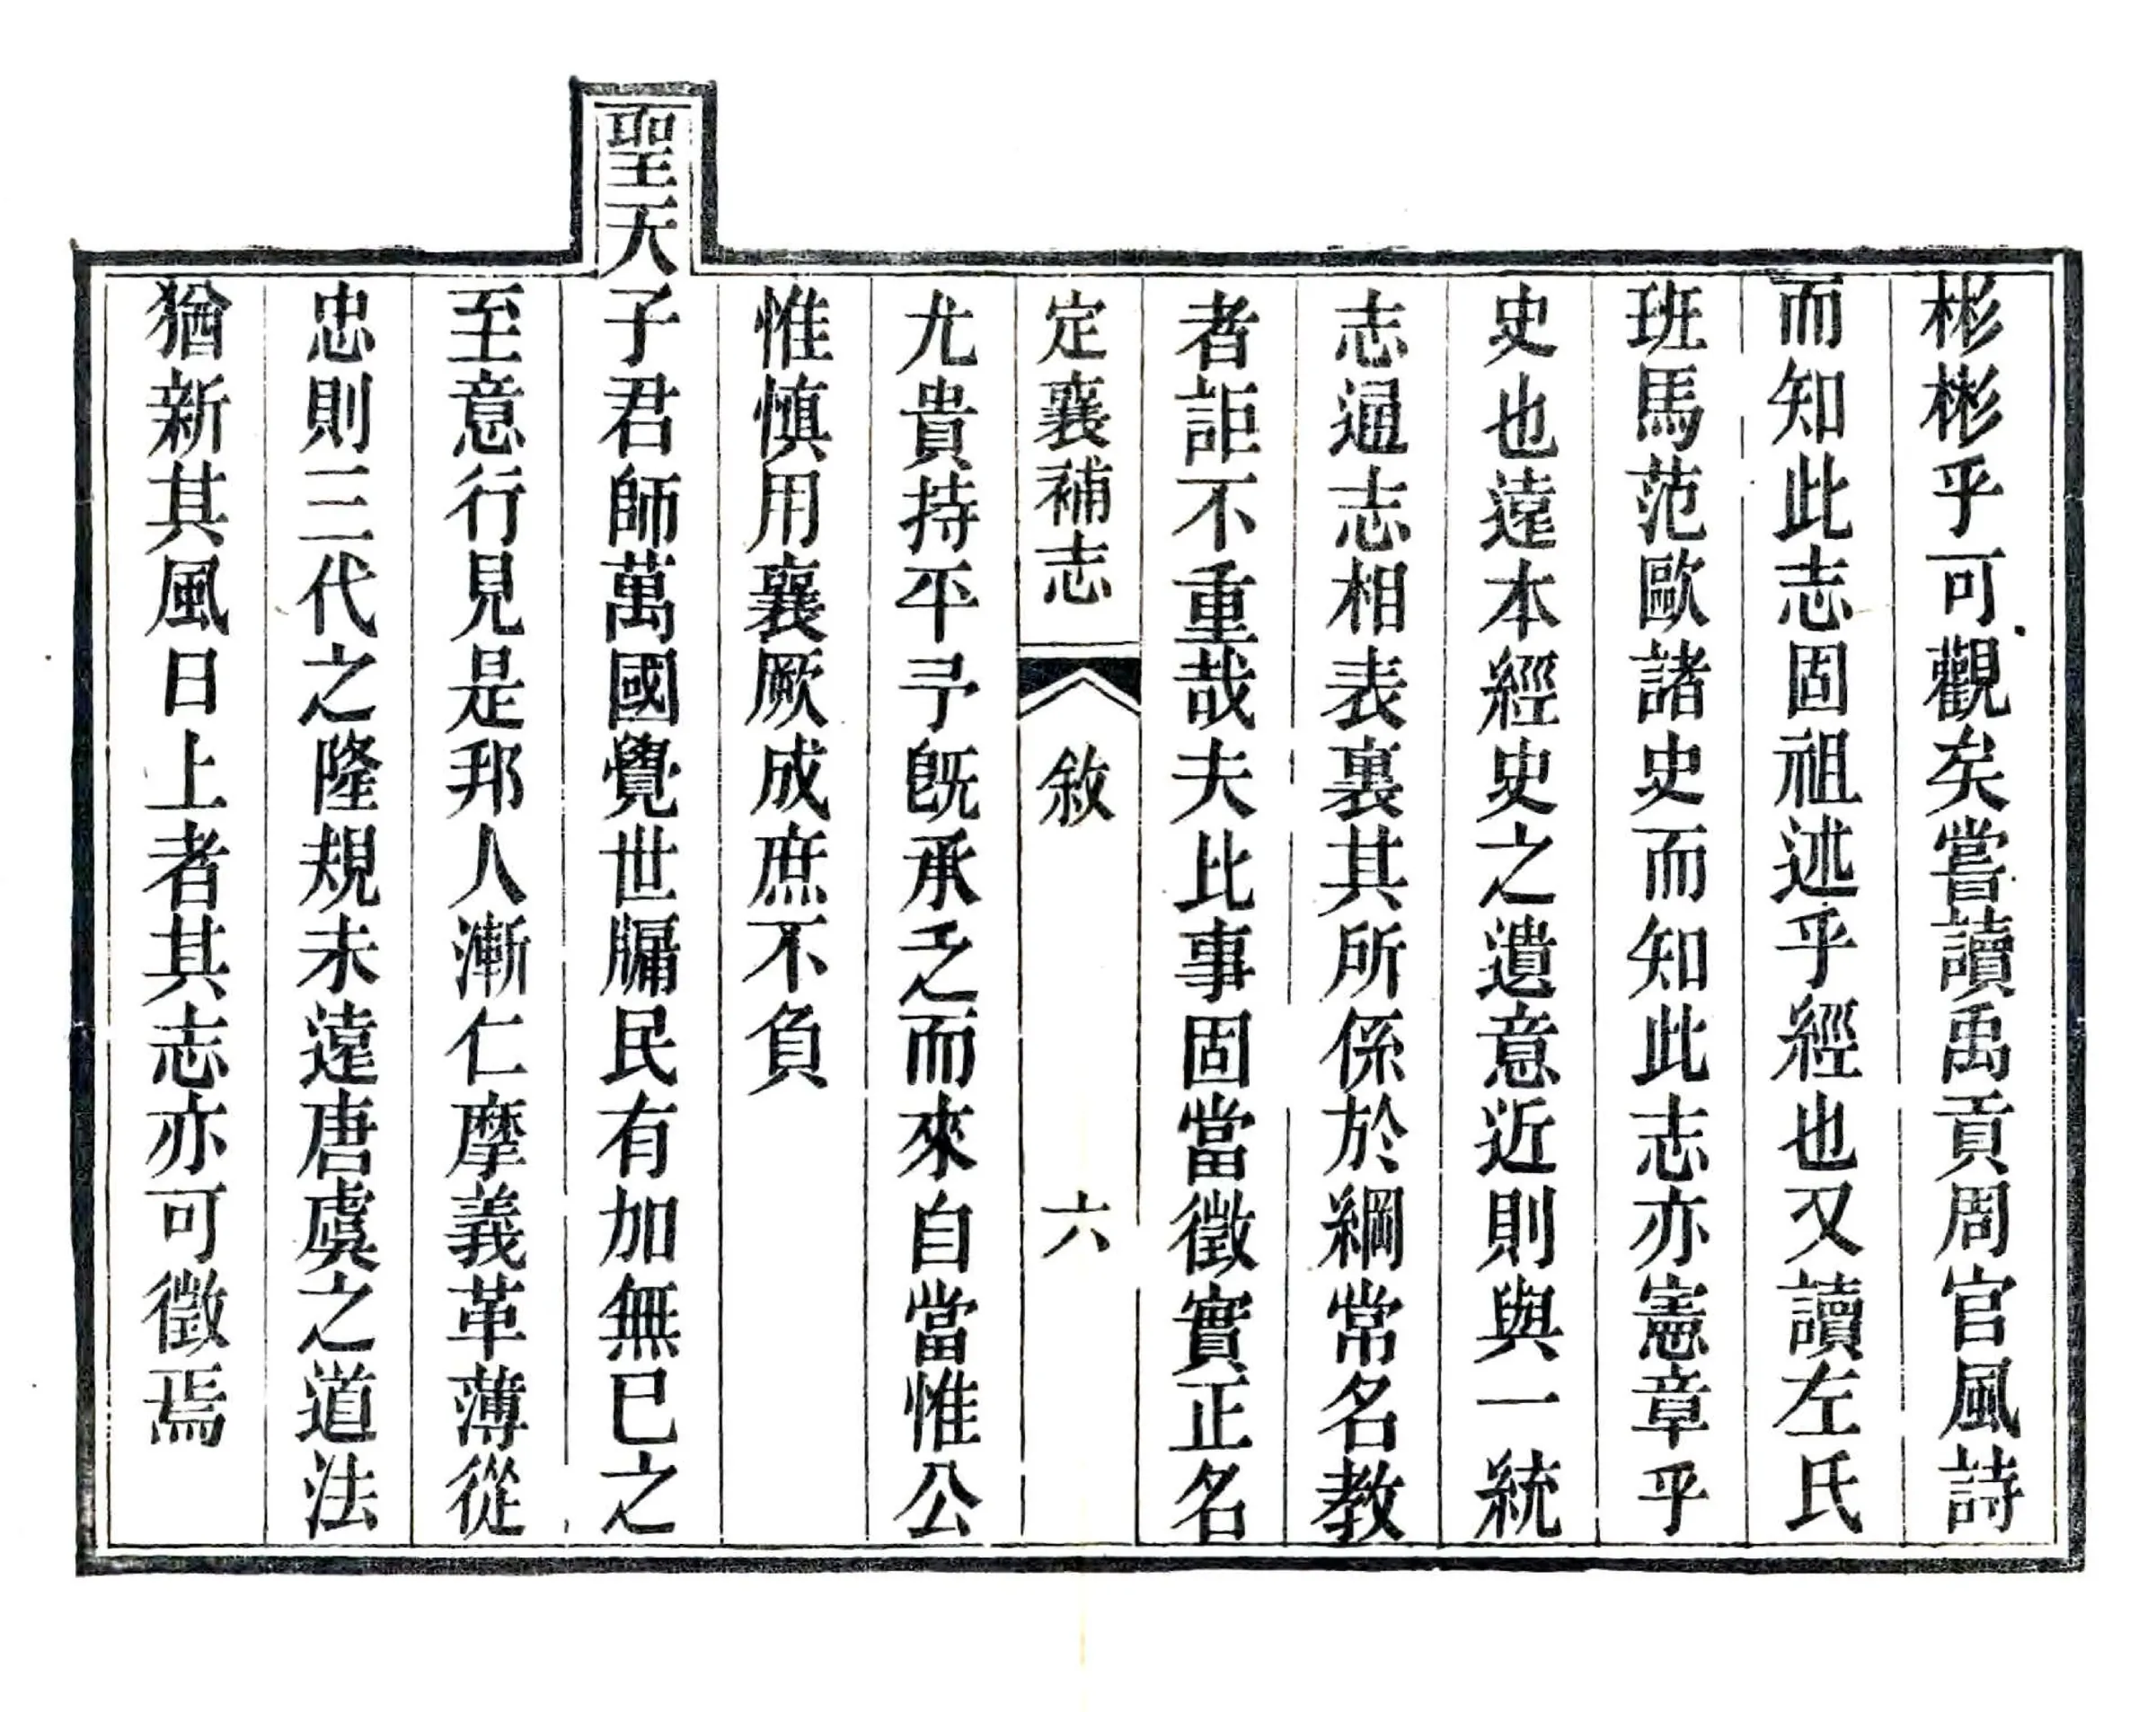 彬彬乎可觀矣嘗讀禹貢周官風詩
而知此志固祖述乎經也又讀左氏
班馬范歐諸史而知此志亦憲章乎
史也遠本經史之遺意近則與一統
志通志相表裏其所係於綱常名教
者詎不重哉夫比事固當徵實正名
定襄補志
敘
六
尤貴持平予既承乏而來自當惟公
惟慎用襄厥成庶不負
聖天子君師萬國覺世牖民有加無已之
至意行見是邦人漸仁摩義革薄從
忠則三代之隆規未遠唐虞之道法
猶新其風日上者其志亦可徵焉